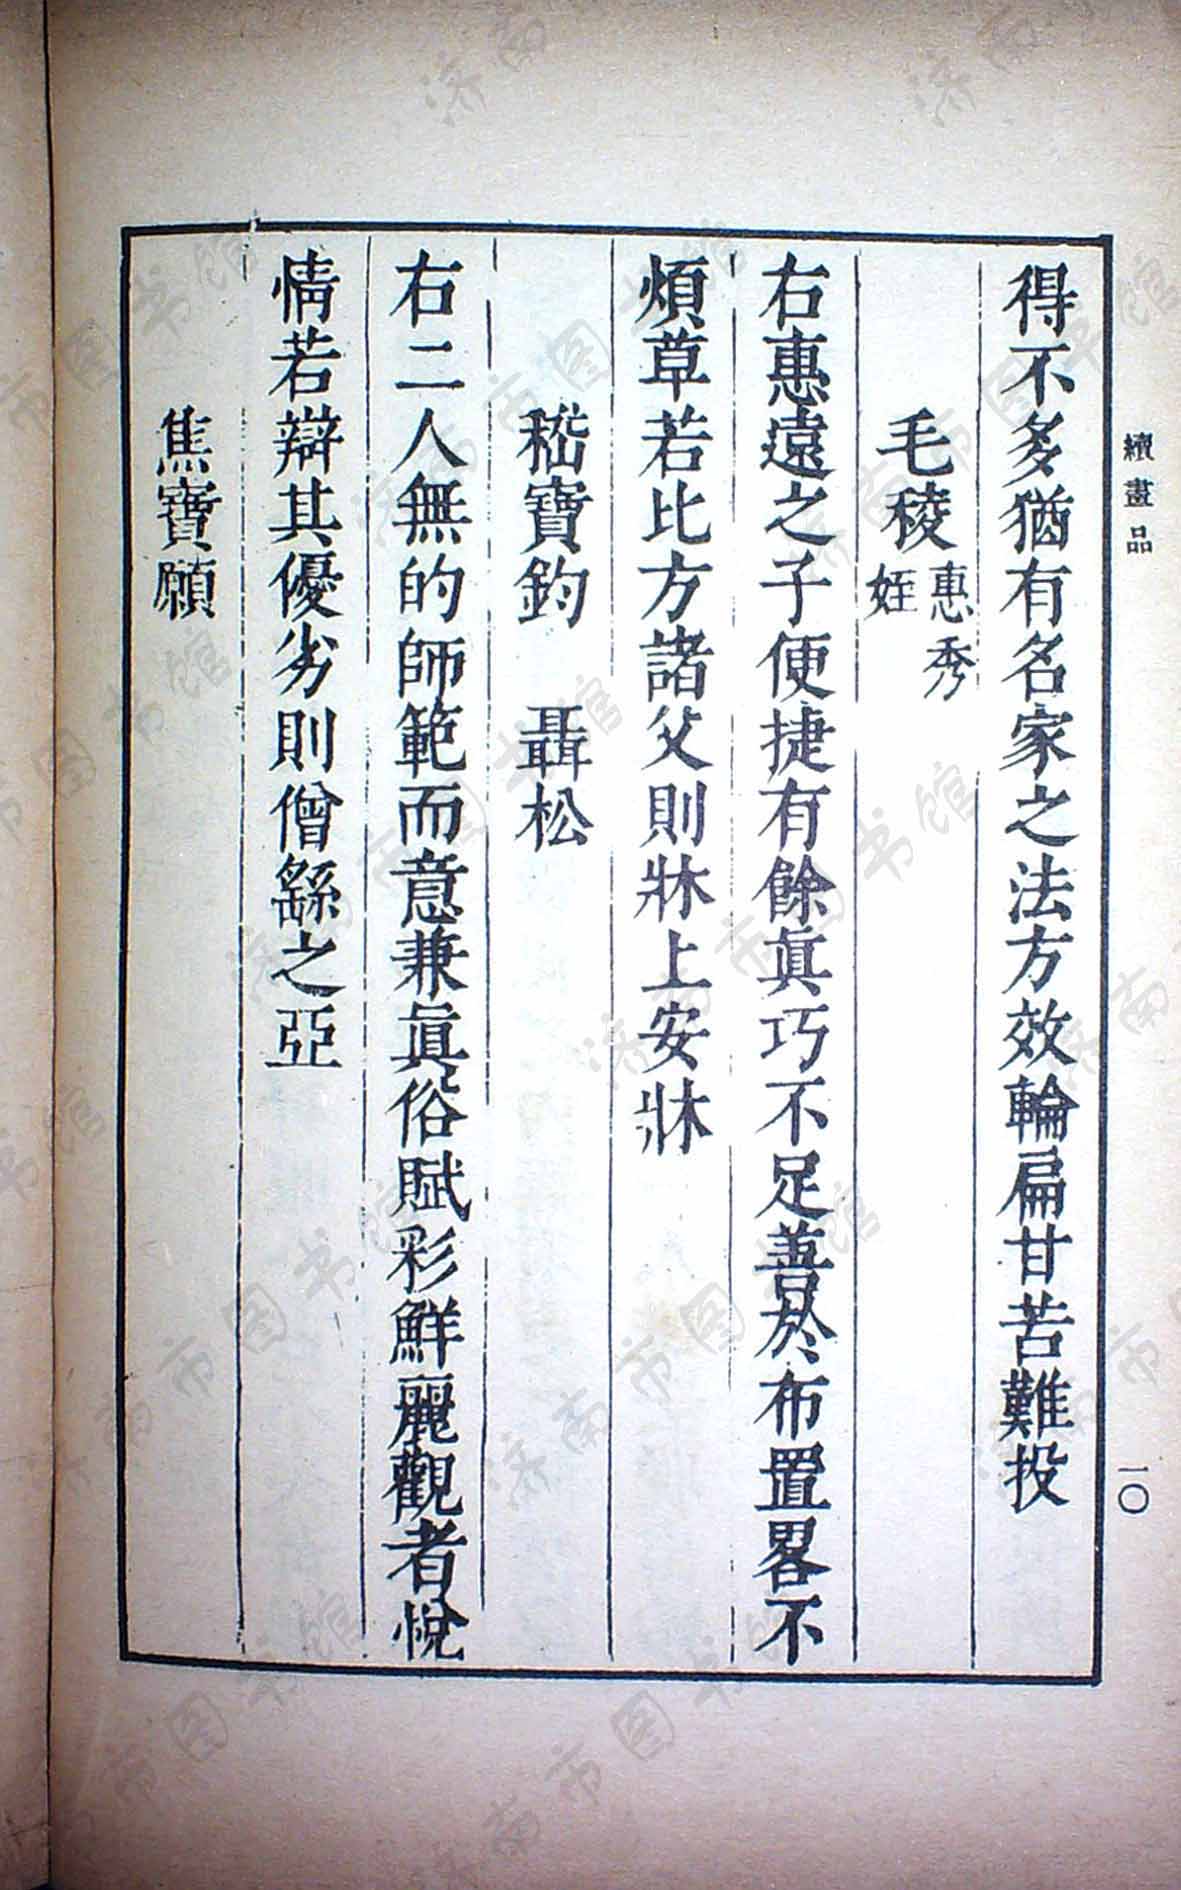 續畫品
得不多猶有名家之法方效輪扁甘苦難投
毛稜惠秀姪
右惠遠之子便捷有餘眞巧不足善於布置畧不
煩草若比方諸父則牀上安牀
嵇寶鈞 聶松
右二人無的師範而意兼眞俗賦彩鮮麗觀者悅
情若辯其優劣則僧繇之亞
焦寶願
一〇
济南市图书馆